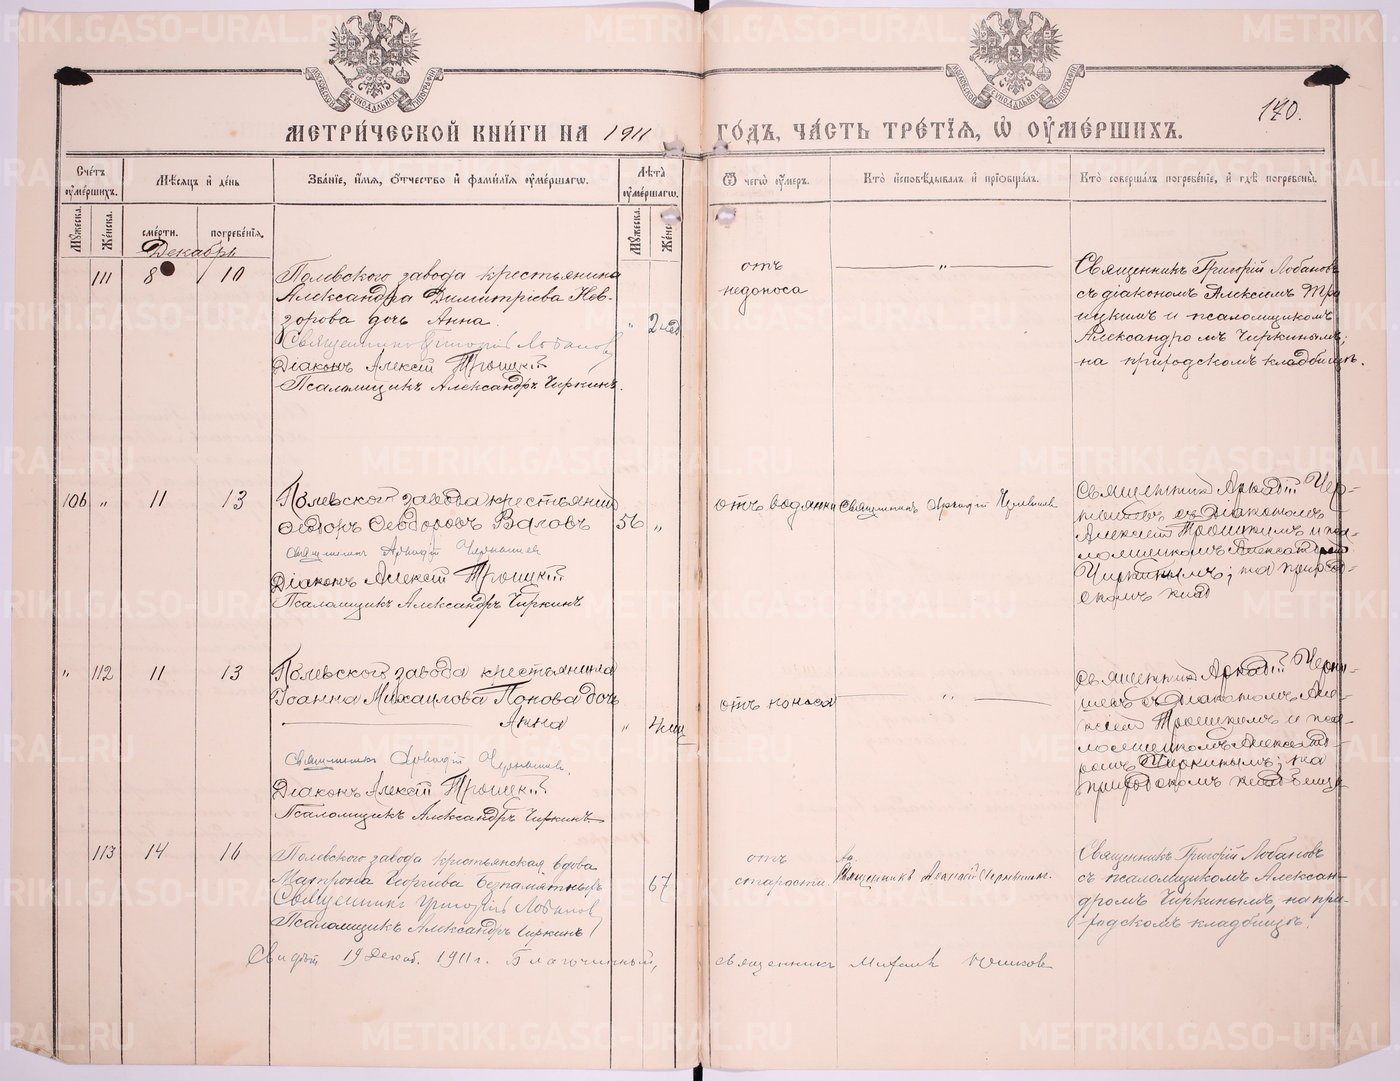 МЕТРИ́ЧЕСКОЙ КНИ́ГИ НА 1911 ГО́ДЪ, ЧА́СТЬ ТРЕ́ТІЯ, Ѡ ОУМЕ́РШИХЪ.
170.
Сче́тъ оуме́ршихъ.
Мѣ́сяцъ и де́нь
Зва́ніе, и́мя, о́тчество и фами́лія оуме́ршагѡ.
Лѣ́та оуме́ршагѡ.
Ѿ чегѡ̀ оу́меръ.
Кто̀ исповѣ́дывалъ и пріѡбща́лъ.
Кто̀ соверша́лъ погребе́ніе, и гдѣ̀ погребены̀.
Му́жеска. Же́нска.
сме́рти. погребе́нія.
Му́жеска. Же́нск
Декабрь
111 8 10
Полевского завода крестьянина
Александра Димитріева Нев-
зорова дочь Анна.
" 2 нед
Священникъ Григорій Лобановъ
Діаконъ Алексій Троицкій
Псаломщикъ Александръ Чиркинъ.
отъ
недоноса
"
Священникъ Григорій Лобановъ
съ діакономъ Алексіемъ Тро
ицкимъ и псаломщикомъ
Александромъ Чиркинымъ;
на приходскомъ кладбищѣ.
106 " 11 13
Полевского завода крестьянин
Ѳеодоръ Ѳеодоровъ Валовъ
56 "
священникъ Аркадій Чернышев
Діаконъ Алексій Троицкій
Псаломщикъ Александръ Чиркинъ
отъ водянки
Священникъ Аркадій Чернышев
Священникъ Аркадій Чер-
съ діакономъ
Алексіем Троицкимъ и пса-
ломщикомъ Александром
Чиркинымъ; на приход-
скомъ клад
" 112 11 13
Полевского завода крестьянина
Іоанна Михаилова Попова дочь
Анна
" 4 мѣс
священникъ Аркадій Чернышев.
Діаконъ Алексій Троицкій
Псаломщикъ Александръ Чиркинъ.
отъ поноса
"
Священник Аркадій Черны-
шевъ съ діакономъ Але-
ксіем Троицкимъ и пса-
ломщикомъ Александ-
ромъ Чиркинымъ; на
приходскомъ кладбище
113 14 16
Полевского завода крестьянская вдова
Матрона Георгіева Безпамятныхъ
67
Священникъ Григорій Лобановъ
Псаломщикъ Александръ Чиркинъ
отъ
старости.
Священникъ Аркадій Чернышевъ.
Священникъ Григорій Лобановъ
съ псаломщикомъ Алексан-
дромъ Чиркинымъ, на при-
ходскомъ кладбищѣ.
19 декаб. 1911 г. Благочинный, священникъ Михаилъ Юшковъ
METRIKI.GASO-URAL.RU